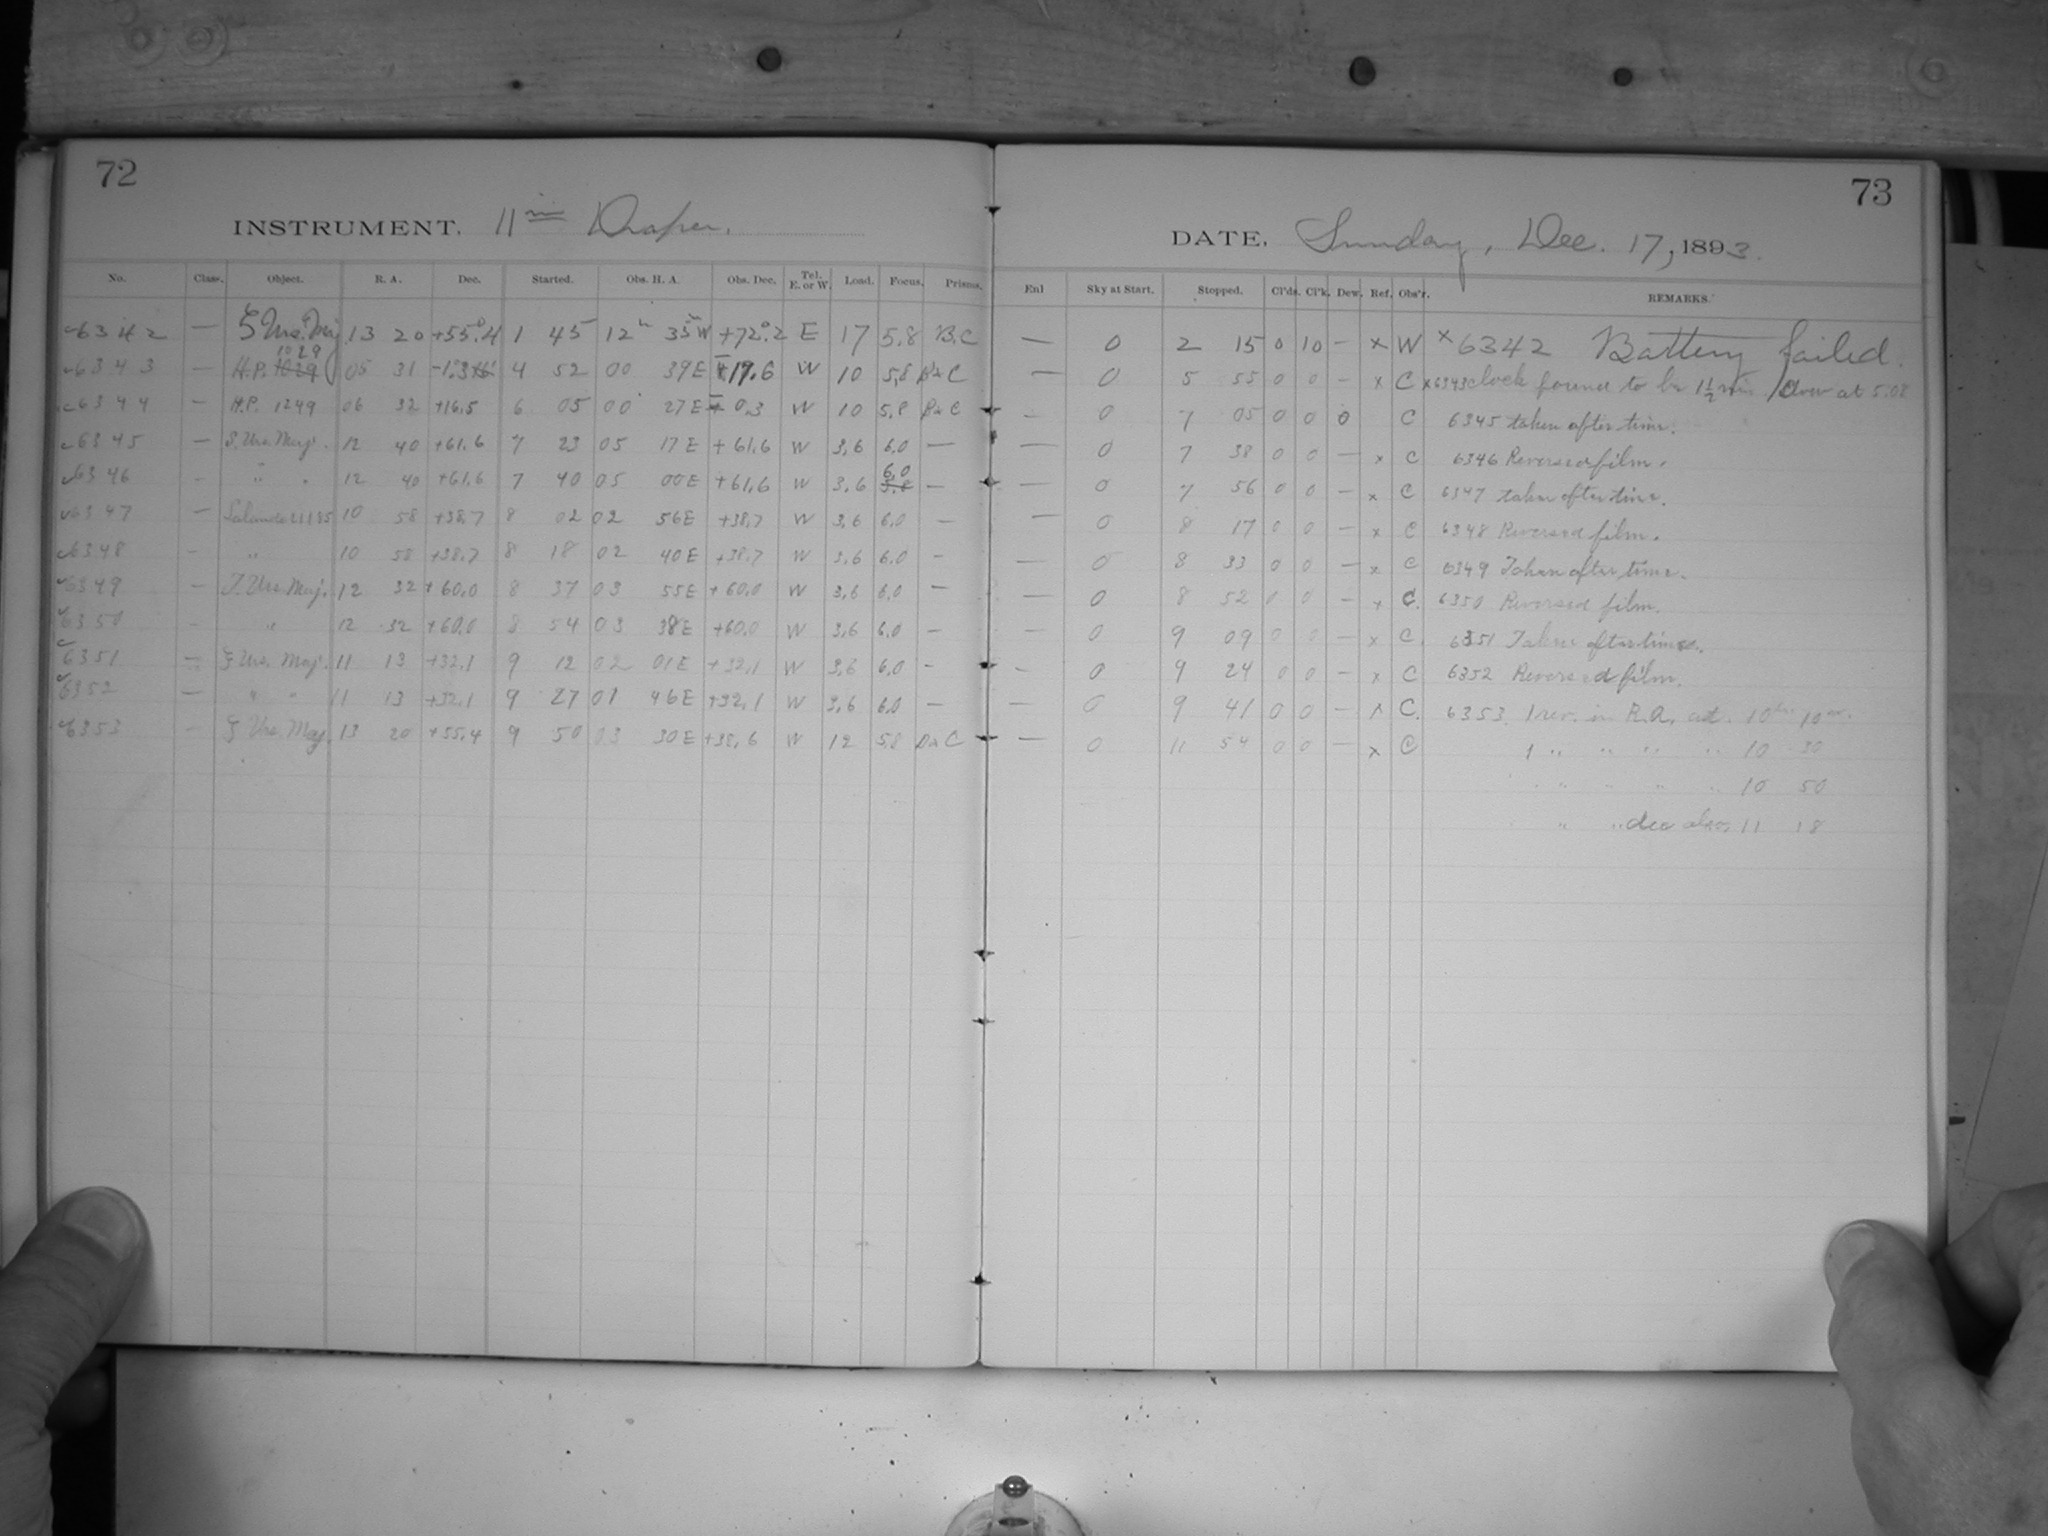 72
INSTRUMENT. 11 in Draper.
No. Class. Object. R. A. Dec. Started. Obs. H. A. Obs. Dec. Tel. E. or W. Load. Focus. Prisms.
6342 — ζ Urs. Maj. 13 20 +55°.4 1 45 12h 35m W +72°.2 E 17 5.8 B.C
6343 — H.P. 1029 05 31 4 52 00 39E 17.6 W 10 5.8 B & C
6344 — H.P. 1249 06 32 +16.5 6 05 00 27E 0.3 W 10 5.8 B & C
6345 — S. Urs. Maj. 12 40 +61.6 7 23 05 17E +61.6 W 3.6 6.0 —
6346 — " " 12 40 +61.6 7 40 05 00E +61.6 W 3.6 6.0 —
6347 — 10 58 +38.7 8 02 02 56E +38.7 W 3.6 6.0 —
6348 — " 10 58 +38.7 8 18 02 40E +38.7 W 3.6 6.0 —
6349 — T. Urs. Maj. 12 32 +60.0 8 37 03 55E +60.0 W 3.6 6.0 —
6350 — " 12 32 +60.0 8 54 03 38E +60.0 W 3.6 6.0 —
6351 — ξ Urs. Maj. 11 13 +32.1 9 12 02 01E +32.1 W 3.6 6.0 —
6352 — " " 11 13 +32.1 9 27 01 46E +32.1 W 3.6 6.0 —
6353 — ζ Urs. Maj. 13 20 +55.4 9 50 03 30E +38.6 W 12 5.8 B & C
73
DATE. Sunday, Dec. 17, 1893.
Enl Sky at Start. Stopped. Cl'ds. Cl'k. Dew. Ref. Obs'r. REMARKS.
— 0 2 15 0 10 — x W x 6342 Battery failed.
— 0 5 55 0 0 — x C x 6343 Clock found to be 1½ min. slow at 5.02
— 0 7 05 0 0 0 C 6345 taken after time.
— 0 7 38 0 0 — x C 6346 Reversed film.
— 0 7 56 0 0 — x C 6347 taken after time.
— 0 8 17 0 0 — x C 6348 Reversed film.
— 0 8 33 0 0 — x C 6349 Taken after time.
— 0 8 52 0 0 — x C. 6350 Reversed film.
— 0 9 09 0 0 — x C. 6351 Taken after time.
— 0 9 24 0 0 — x C 6352 Reversed film.
— 0 9 41 0 0 — x C. 6353. 1 rev. in R.A. at
— 0 11 54 0 0 — x C 1 " " " " 10 30
" " " " 10 50
" " dec also, 11 18